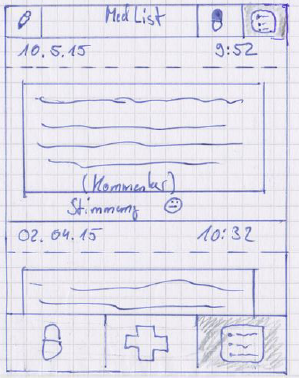 Med List
10.5.15 9:52
(Kommentar)
Stimmung
02.04.15 10:32